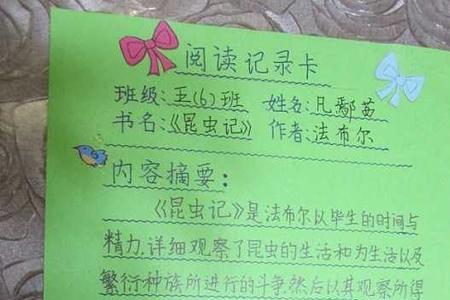 阅读记录卡
班级:五(6)班 姓名:凡鄢茜
书名:《昆虫记》 作者:法布尔
内容摘要:
《昆虫记》是法布尔以毕生的时间与
精力,详细观察了昆虫的生活和为生活以及
繁衍种族所进行的斗争,然后以其观察所得